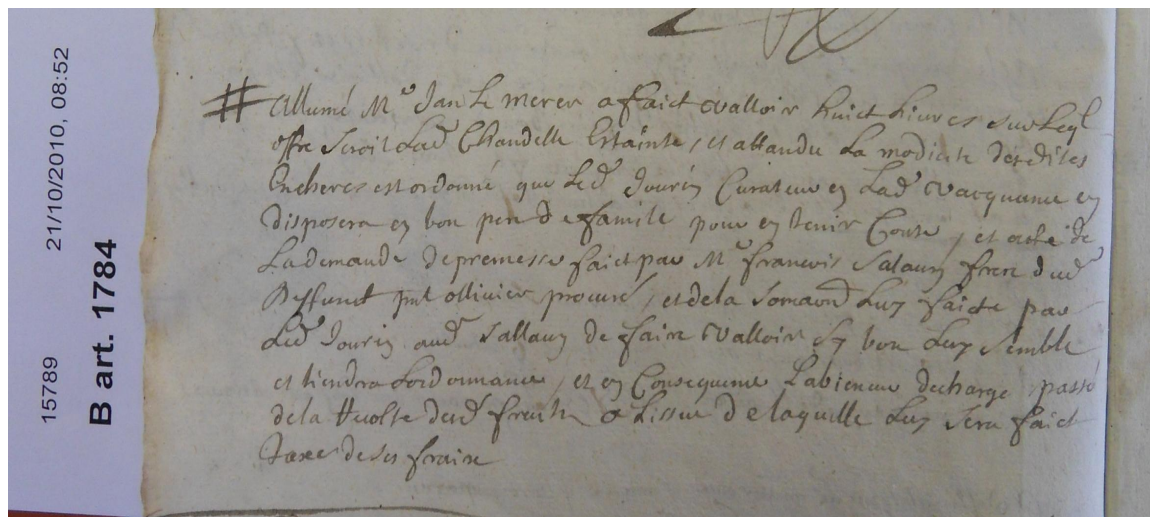 21/10/2010, 08:52
15789
B art. 1784
# allumé Me Jan Le mercer a faict valloir huict livres sur Leql
offre seroit Lad Chandelle Estainte, et attandu La modicité desdites
Encheres est ordonné que Led Jourin Curateur en Lad vacquance en
disposera en bon pere de famile pour en tenir Conte, et acte de
La demande de premesse faict par Me francois Salaun frere dud
deffunct pnt ollivier procur, et de la somaon Luy faicte par
Led Jourin aud Sallaun de faire valloir sy bon Luy semble
et tiendra Lordonnance, et en Consequence decharge passé
de la Huolte desd fruits a Lissue de laquelle Luy sera faict
taxe de ses fraix